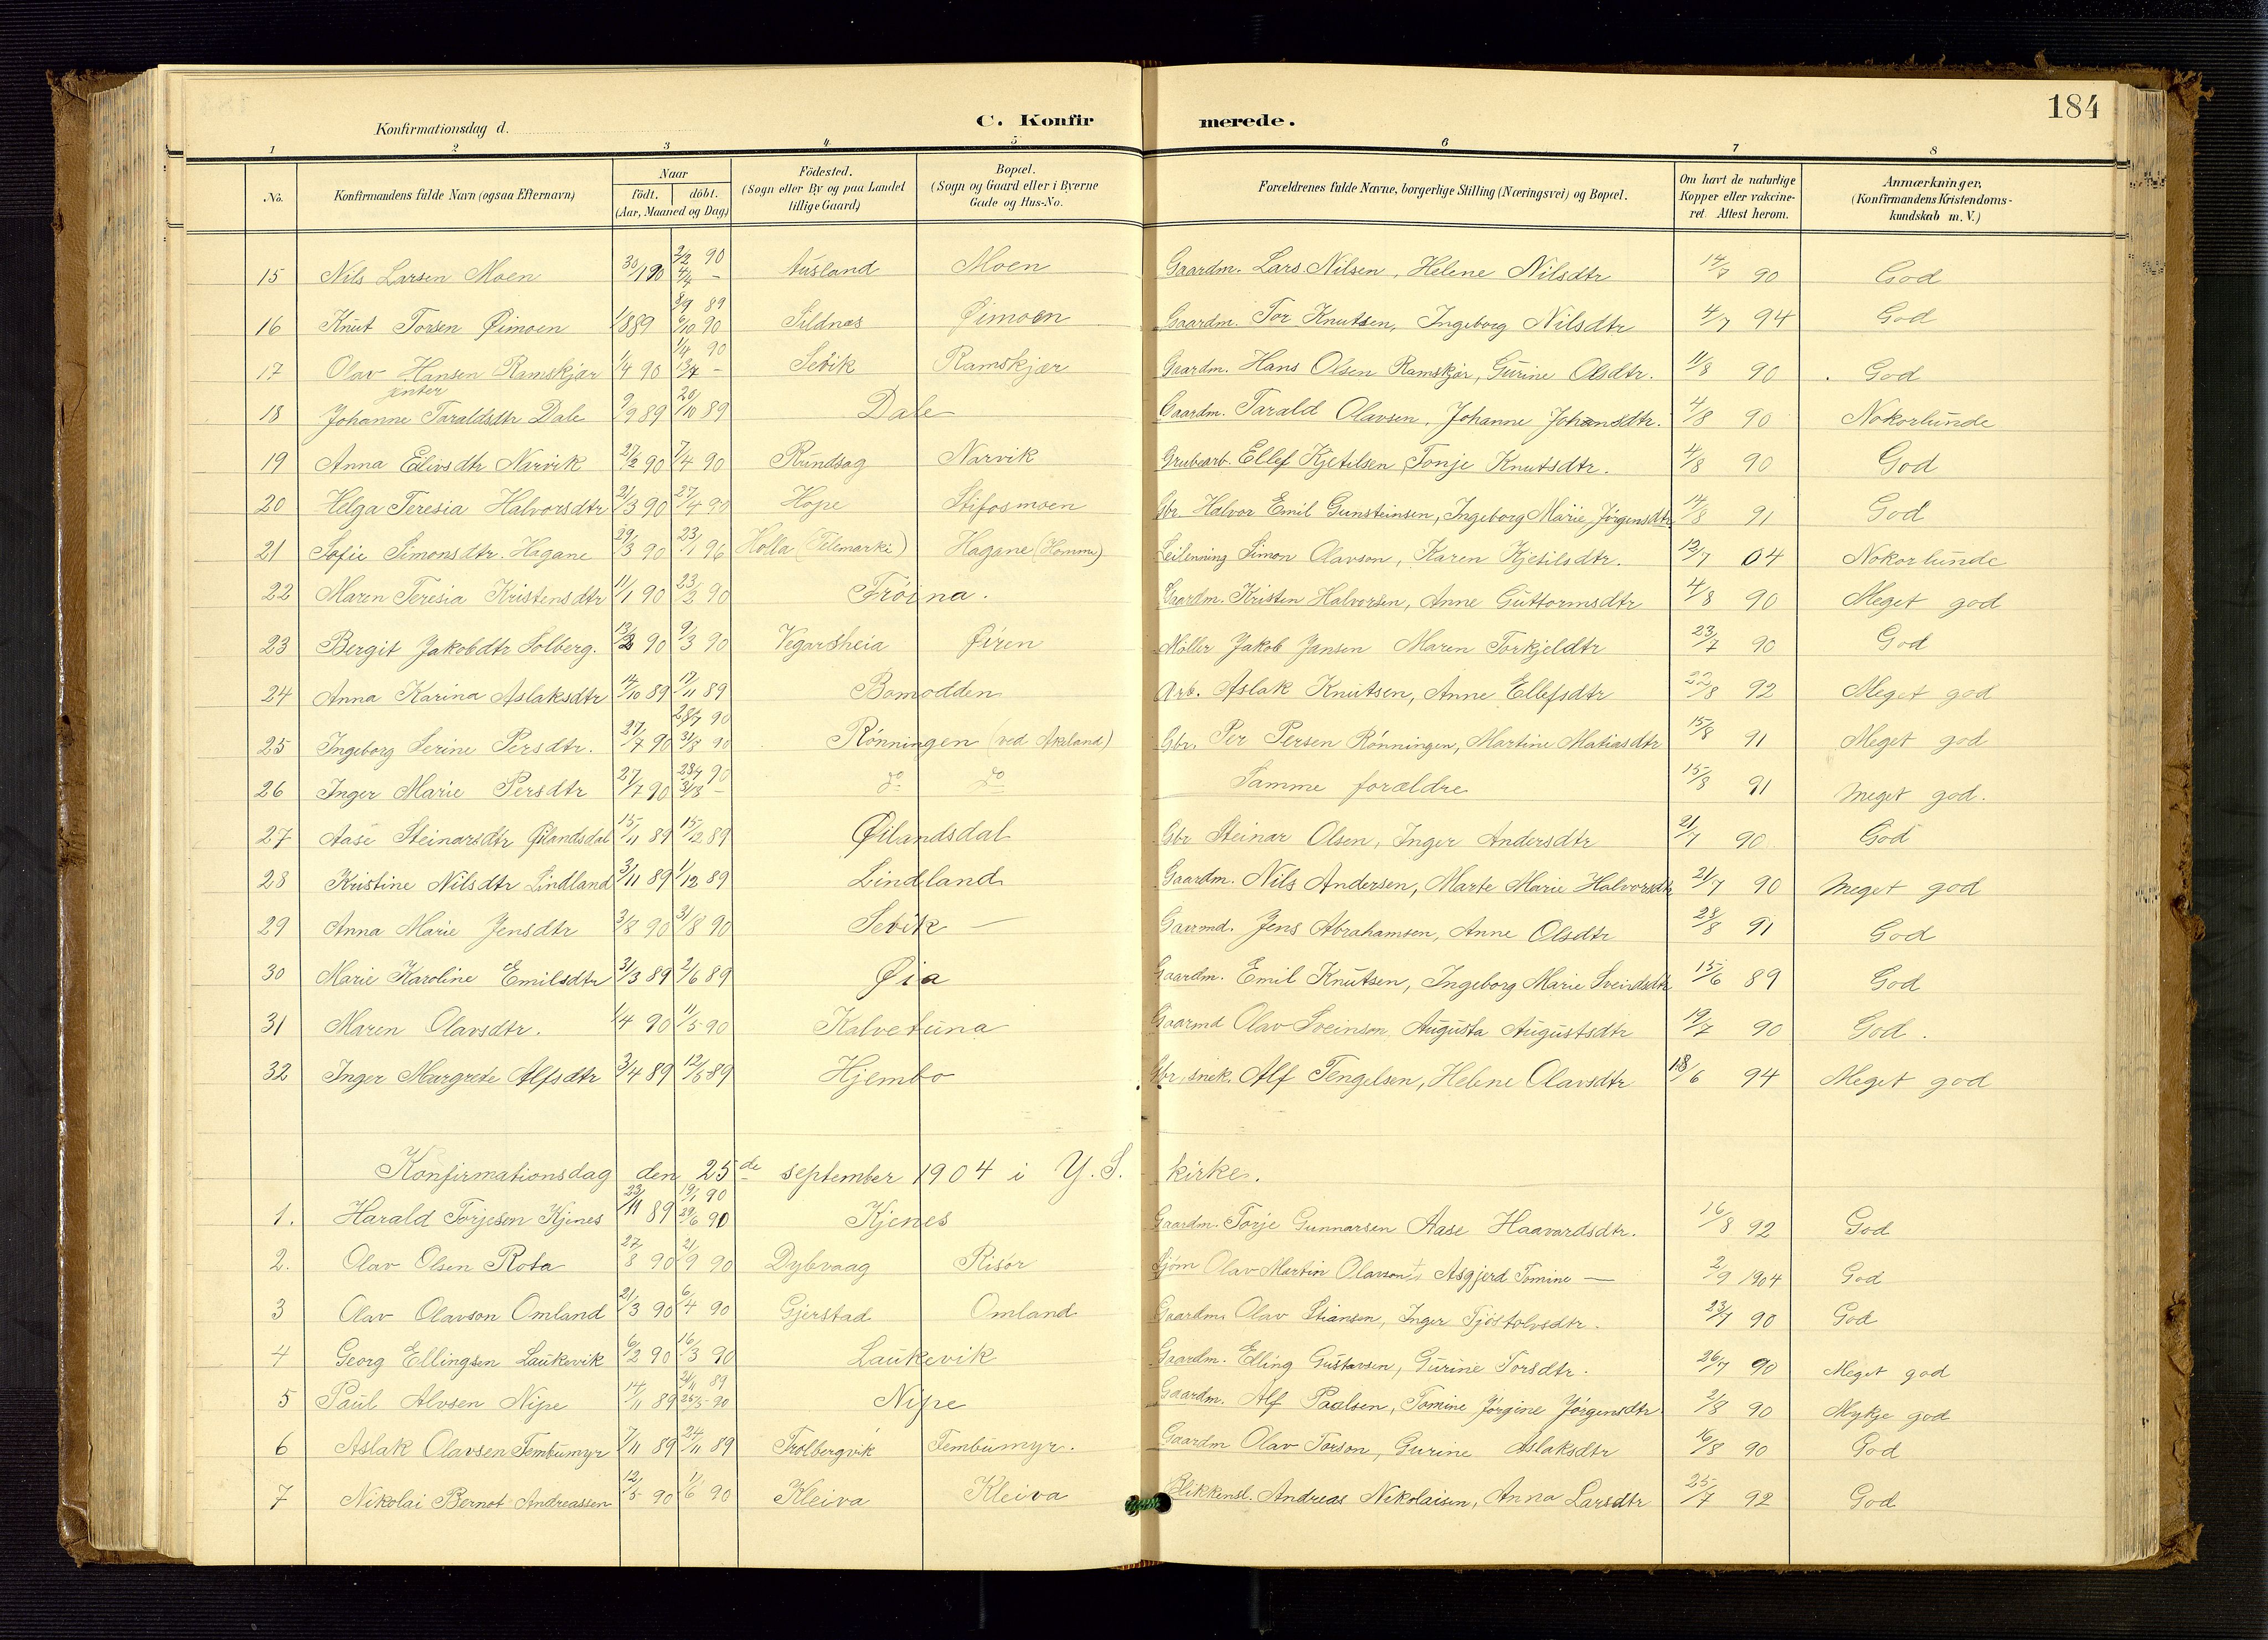 184
Konfirmationsdag d. C. Konfirmerede.
1 2 3 4 5 6 7 8
No. Konfirmandens fulde Navn (ogsaa Efternavn) Naar født. døbt. (Aar, Maaned og Dag) Födested. (Sogn eller By og paa Landet tillige Gaard) Bopæl. (Sogn og Gaard eller i Byerne Gade og Hus-No. Forældrenes fulde Navne, borgerlige Stilling (Næringsvei) og Bopæl. Om havt de naturlige Kopper eller vakcineret. Attest herom. Anmærkninger, (Konfirmandens Kristendomskundskab m. V.)
15 Nils Larsen Moen 30/1 90 2/2 90 4/4 - Ausland Moen Gaardm. Lars Nilsen, Helene Nilsdtr 14/7 90 God
16 Knut Torsen Øimoen 1/8 89 8/9 89 6/10 90 Sildnes Øimoen Gaardm. Tor Knutsen, Ingeborg Nilsdtr 4/7 94 God
17 Olav Hansen Ramskjær 1/4 90 1/4 90 13/4 - Sevik Ramskjær Gaardm. Hans Olsen Ramskjær, Gurine Olsdtr. 11/8 90 God
jenter
18 Johanne Taraldsdtr Dale 9/9 89 20/10 89 Dale Gaardm. Tarald Olavsen, Johanne Johansdtr. 4/8 90 Nokorlunde
19 Anna Eilivsdtr Narvik 27/2 90 7/4 90 Rundsag Narvik Grubearb. Ellef Kjetilsen, Tonje Knutsdtr. 4/8 90 God
20 Helga Teresia Halvorsdtr 21/3 90 27/4 90 Hope Stifosmoen Gbr. Halvor Emil Gunsteinsen, Ingeborg Marie Jörgensdtr 14/8 91 God
21 Sofie Simonsdtr. Hagane 29/3 90 23/1 96 Holla (Telemarki) Hagane (Homme) Leilenning Simon Olavson, Karen Kjetilsdtr. 12/7 04 Nokorlunde
22 Maren Teresia Kristensdtr 11/1 90 23/2 90 Fröina. Gaardm. Kristen Halvorsen, Anne Guttormsdtr 4/8 90 Meget god
23 Bergit Jakobdtr Solberg. 13/2 90 9/3 90 Vegarsheia Øiren Möller Jakob Jansen Maren Torkjeldtr 23/7 90 God
24 Anna Karina Aslaksdtr 14/10 89 17/11 89 Bomodden Arb. Aslak Knutsen, Anne Ellefsdtr 22/8 92 Meget god
25 Ingeborg Serine Persdtr. 27/7 90 28/7 90 31/8 90 Rönningen (ved Akland) Gbr. Per Persen Rönningen, Martine Matiasdtr 15/8 91 Meget god
26 Inger Marie Persdtr 27/7 90 28/7 90 31/8 - do do Samme forældre 15/8 91 Meget god.
27 Aase Steinarsdtr Øilandsdal 15/11 89 15/12 89 Øilandsdal Gbr Steinar Olsen, Inger Andersdtr 21/7 90 God
28 Kristine Nilsdtr Lindland 3/11 89 1/12 89 Lindland Gaardm. Nils Andersen, Marte Marie Halvorsdtr 21/7 90 Meget god
29 Anna Marie Jensdtr 3/8 90 31/8 90 Sevik — Gaarmd. Jens Abrahamsen, Anne Olsdtr 28/8 91 God
30 Marie Karoline Emilsdtr 31/3 89 2/6 89 Øia Gaardm. Emil Knutsen, Ingeborg Marie Sveindsdtr 15/6 89 God
31 Maren Olavsdtr. 1/4 90 11/5 90 Kalvetuna Gaarmd Olav Sveinson, Augusta Augustsdtr 19/7 90 God.
32 Inger Margrete Alfsdtr 3/4 89 12/5 89 Hjembo Gbr, snek. Alf Tengelsen, Helene Olavsdtr 18/6 94 Meget god
Konfirmationsdag den 25de september 1904 i Y. S. kirke.
1. Harald Torjesen Kjenes 23/11 89 19/1 90 29/6 90 Kjenes Gaardm. Torje Gunnarsen Aase Haavardsdtr. 16/8 92 God
2. Olav Olsen Rota 27/8 90 21/9 90 Dybvaag Risör Sjöm Olav Martin Olavson, Asgjerd Tomine — 2/9 1904 God
3 Olav Olavson Omland 21/3 90 6/4 90 Gjerstad Omland Gaardm. Olav Stiansen, Inger Tjöstolvsdtr. 23/7 90 God
4 Georg Ellingsen Laukevik 6/2 90 16/3 90 Laukevik Gaardm. Elling Gustavsen, Gurine Torsdtr. 26/7 90 Meget god
5 Paul Alvsen Nipe 14/11 89 21/11 89 26/5 90 Nipe Gaardm. Alf Paalsen, Tomine Jörgine Jörgensdtr 2/8 90 Mykje god
6 Aslak Olavsen Tembumyr 7/11 89 24/11 89 Trolbergvik Tembumyr. Gaardm Olav Torson, Gurine Aslaksdtr 16/8 90 God
7 Nikolai Bernot Andreassen 12/5 90 1/6 90 Kleiva Kleiva Blikkensl. Andreas Nikolaisen, Anna Larsdtr 25/7 92 God